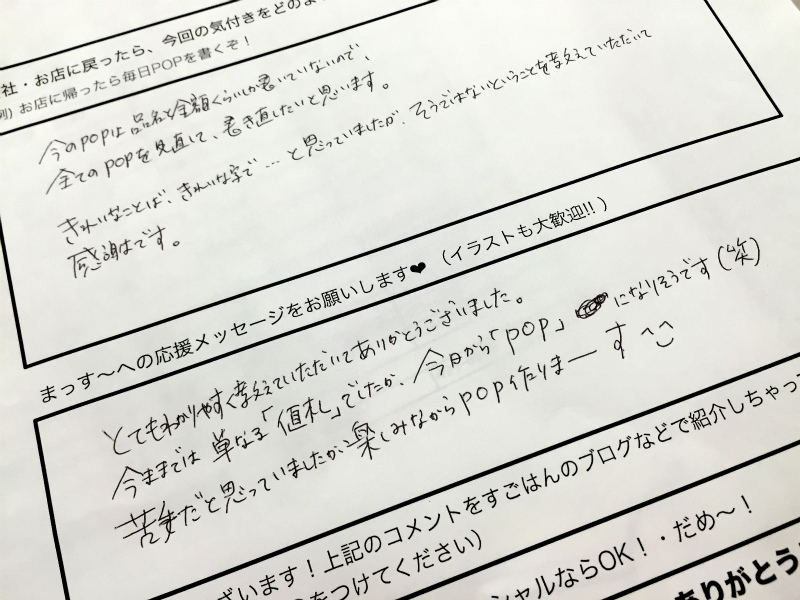 社・お店に戻ったら、今回の気付きをどのよ
例) お店に帰ったら毎日POPを書くぞ！
今のPOPは品名と金額くらいしか書いていないので、
全てのPOPを見直して、書き直したいと思います。
きれいなことば、きれいな字で…と思っていましたが、そうではないということを教えていただいて
感謝です。
まっす〜への応援メッセージをお願いします❤（イラストも大歓迎!! ）
とてもわかりやすく教えていただいてありがとうございました。
今までは単なる「値札」でしたが、今日から「POP」になりそうです(笑)
苦手だと思っていましたが楽しみながらPOP作りまーす^^
ざいます！上記のコメントをすごはんのブログなどで紹介しちゃっ
をつけてください)
シャルならOK！・だめ〜！
ありがとう